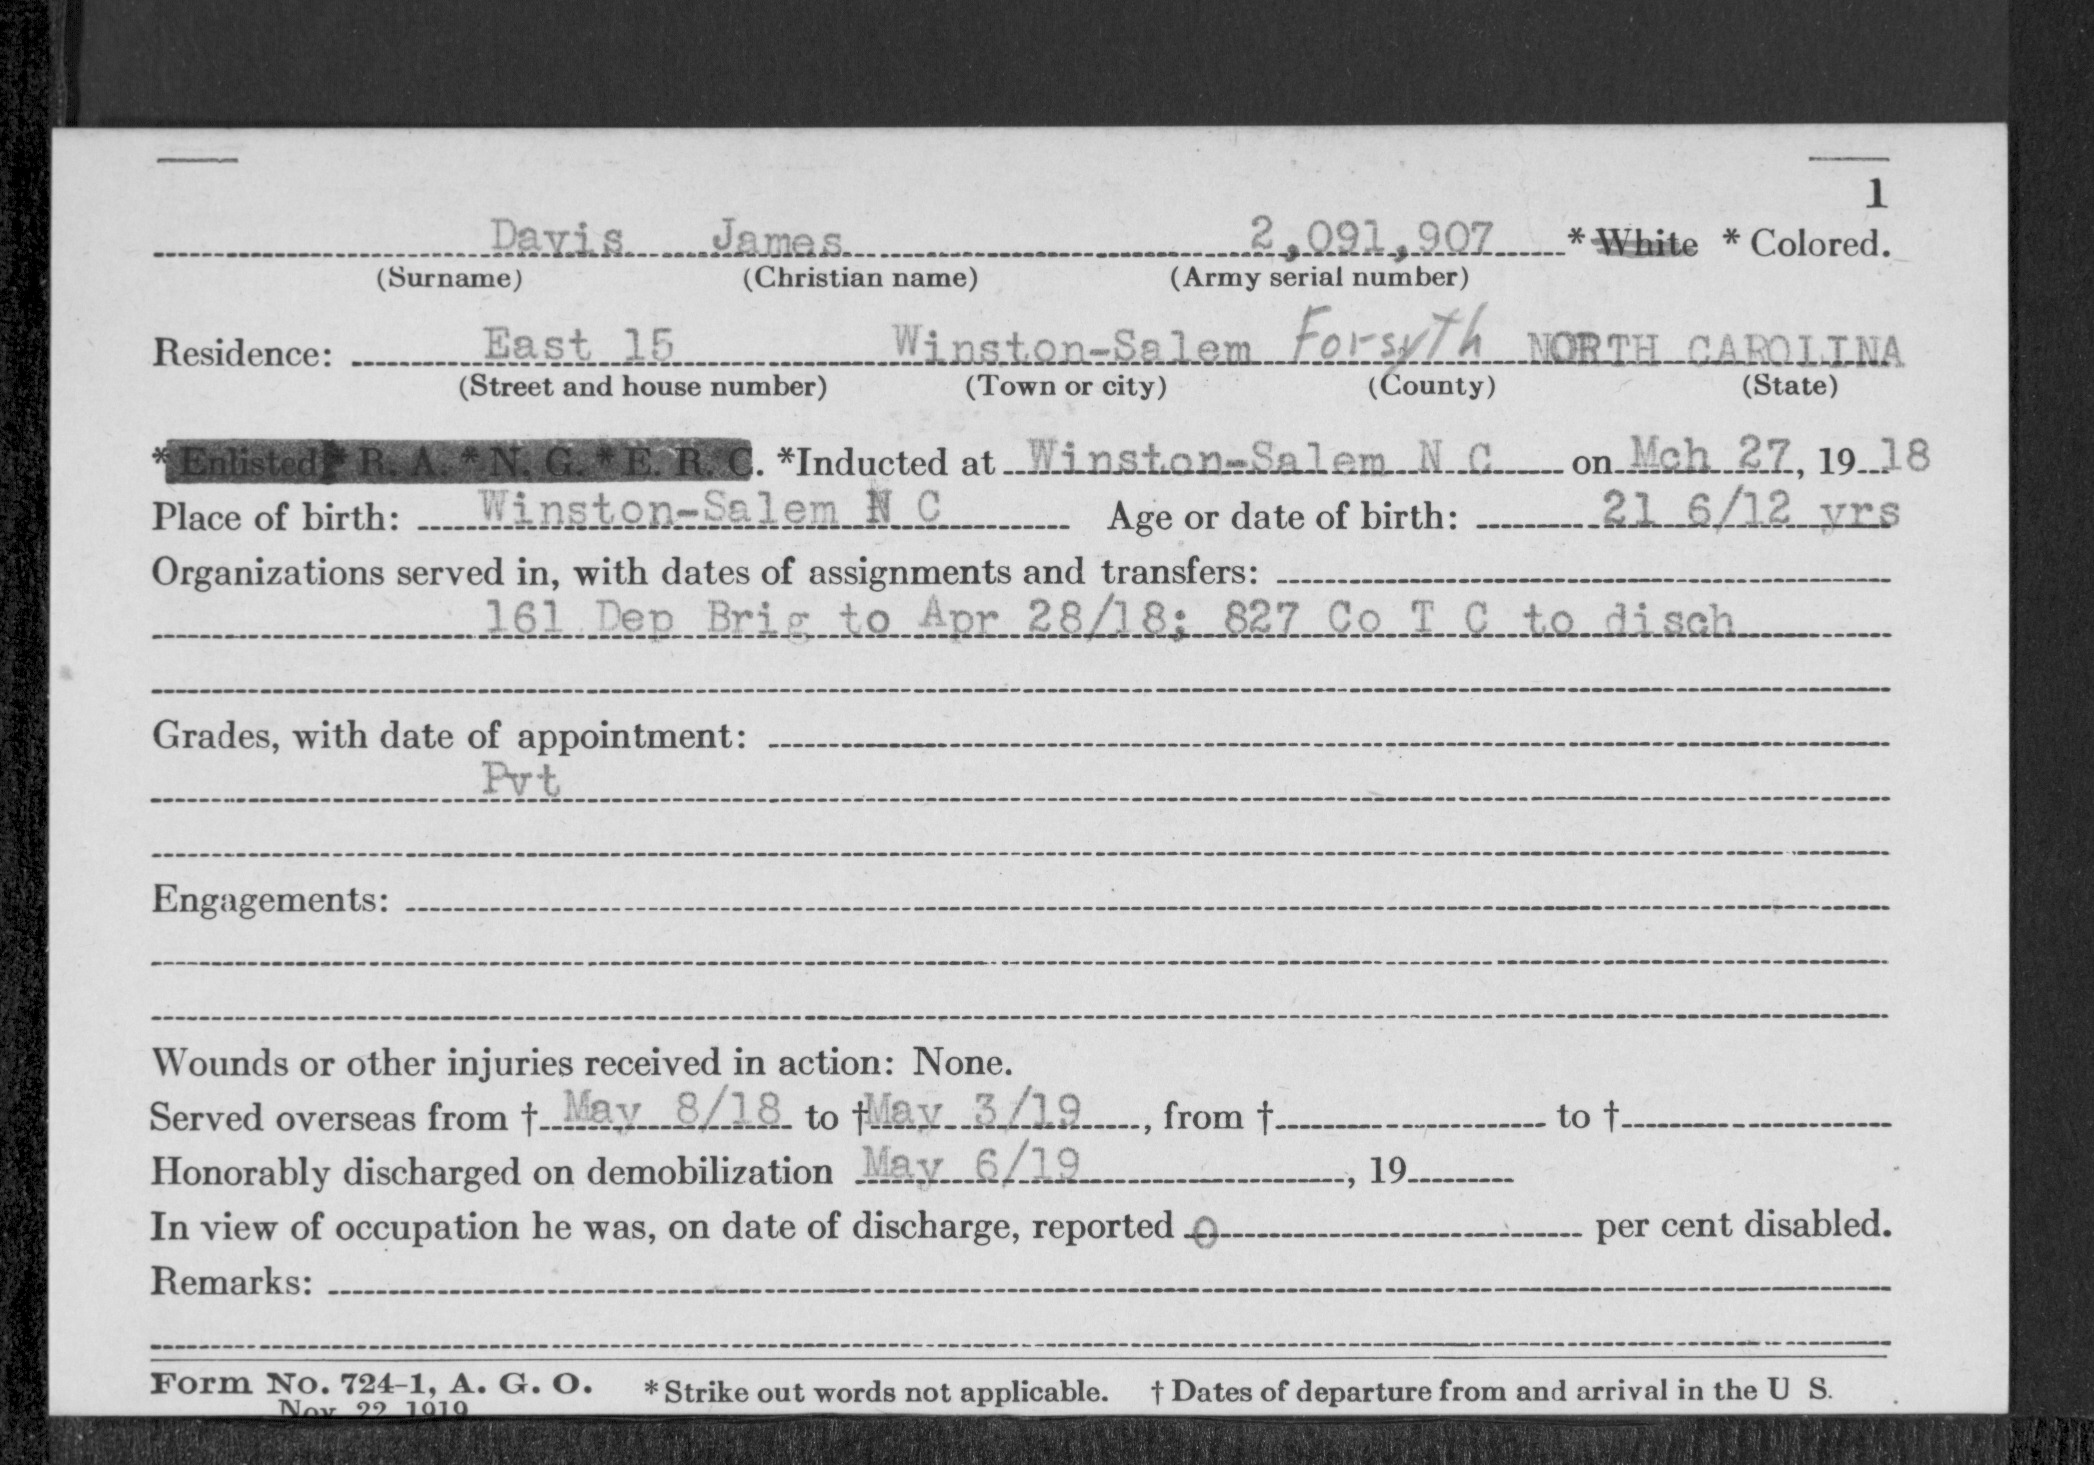 1
Davis James 2,091,907 * White * Colored.
(Surname) (Christian name) (Army serial number)
Residence: East 15 Winston-Salem Forsyth NORTH CAROLINA
(Street and house number) (Town or city) (County) (State)
* Enlisted * R. A. * N. G. * E. R. C. *Inducted at Winston-Salem N C on Mch 27, 19 18
Place of birth: Winston-Salem N C Age or date of birth: 21 6/12 yrs
Organizations served in, with dates of assignments and transfers:
161 Dep Brig to Apr 28/18; 827 Co T C to disch
Grades, with date of appointment:
Pvt
Engagements:
Wounds or other injuries received in action: None.
Served overseas from † May 8/18 to † May 3/19, from † to †
Honorably discharged on demobilization May 6/19, 19
In view of occupation he was, on date of discharge, reported 0 per cent disabled.
Remarks:
Form No. 724-1, A. G. O. * Strike out words not applicable. † Dates of departure from and arrival in the U S.
Nov. 22, 1919